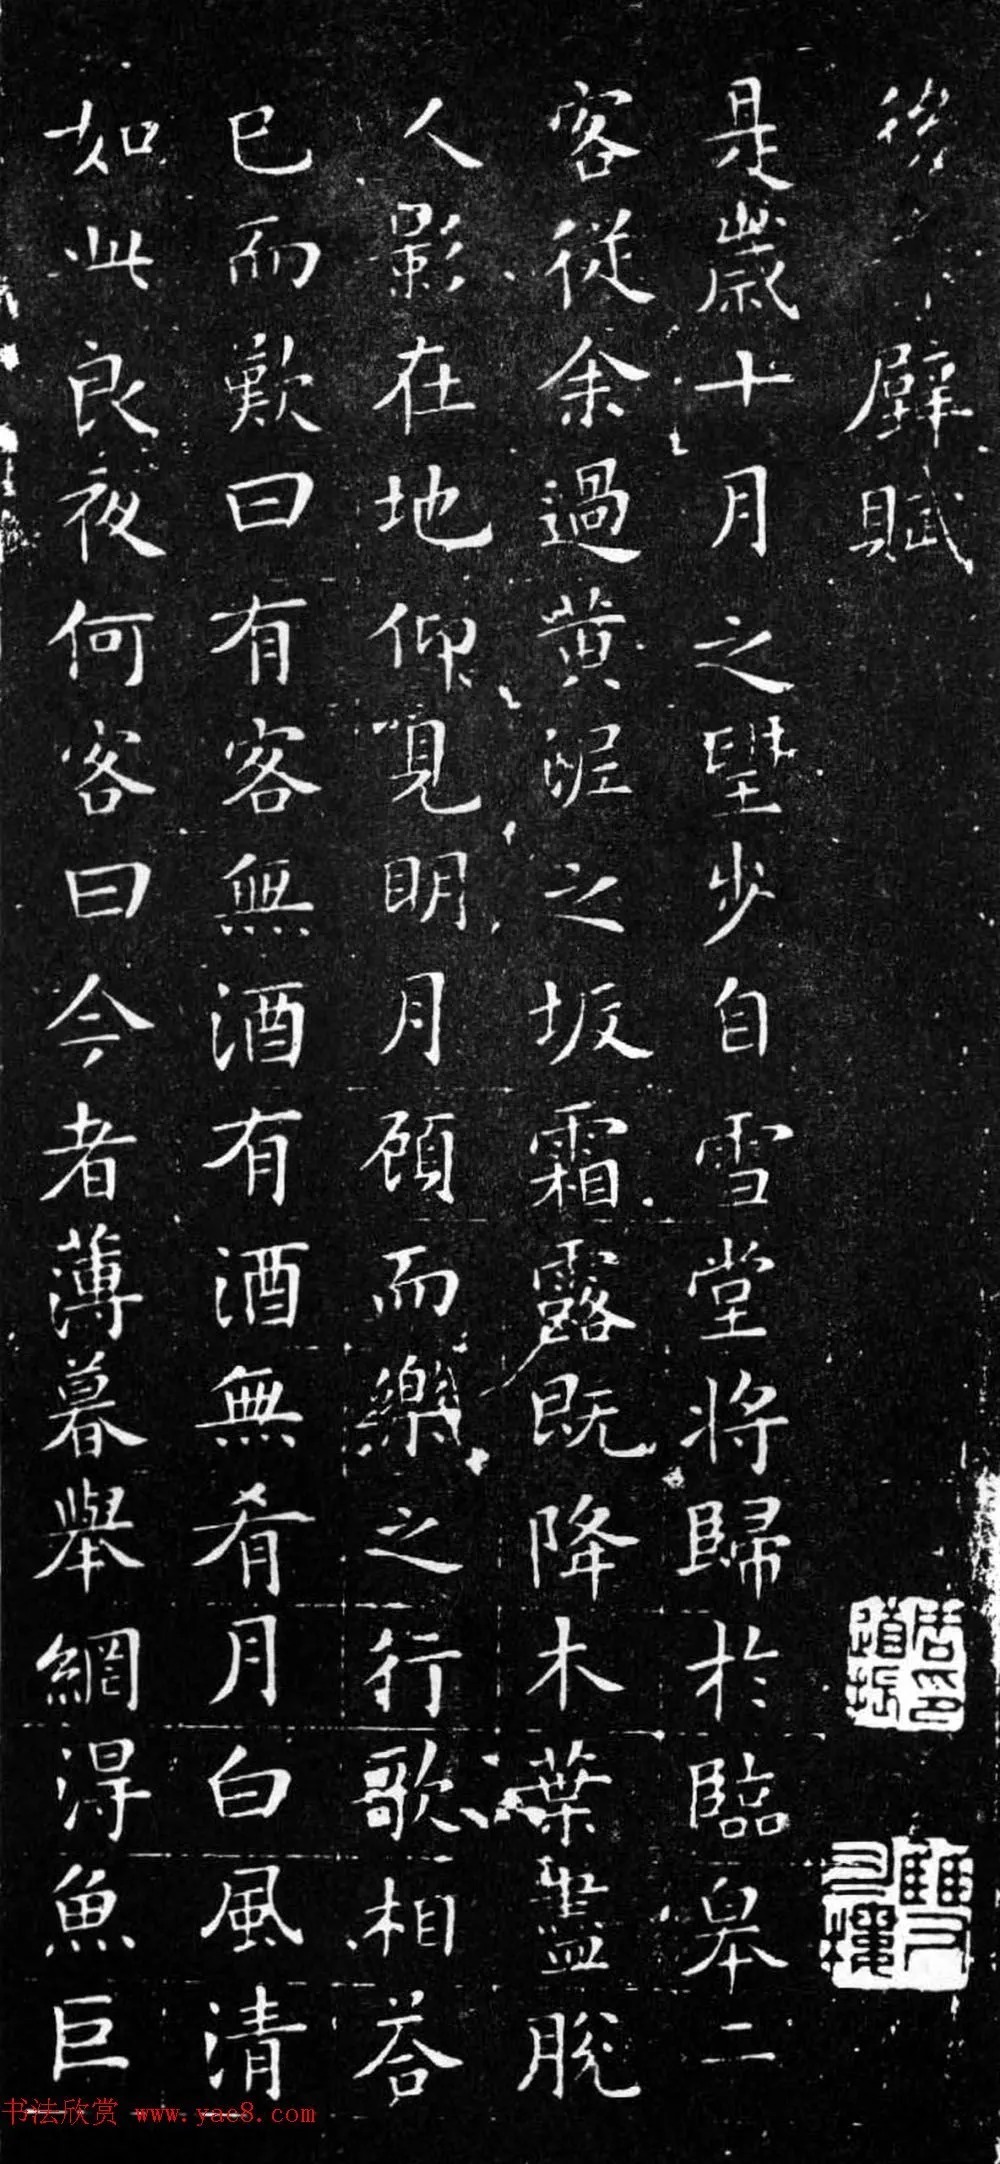 後 壁賦
是歲十月之望步自雪堂將歸於臨皋二
客從余過黃泥之坂霜露既降木葉盡脫
人影在地仰見明月顧而樂之行歌相荅
已而歎曰有客無酒有酒無肴月白風清
如此良夜何客曰今者薄暮舉網得魚巨
书法欣赏 www.yac8.com